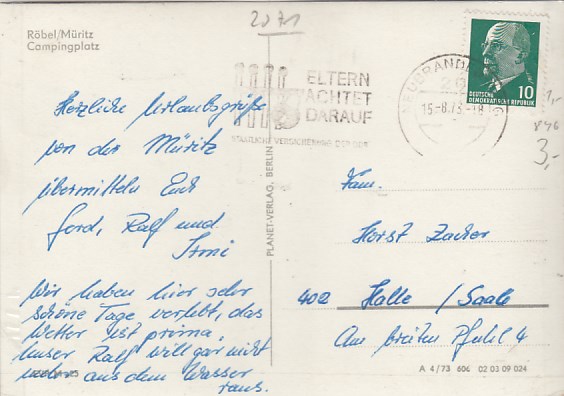 2071
Röbel/Müritz
Campingplatz
ELTERN
ACHTET
DARAUF
STAATLICHE VERSICHERUNG DER DDR
NEUBRANDENBURG
15.-8.73-18
DEUTSCHE
DEMOKRATISCHE REPUBLIK
10
1,-
846
3,-
Herzliche Urlaubsgrüße
von der Müritz
übermitteln Euch
Gerd, Ralf und
Irmi
Wir haben hier sehr
schöne Tage verlebt, das
Wetter ist prima,
unser Ralf will gar nicht
mehr aus dem Wasser
raus.
PLANET-VERLAG, BERLIN
Fam.
Horst Zacher
402 Halle /Saale
Am breiten Pfuhl 4
A 4/73 606 02 03 09 024